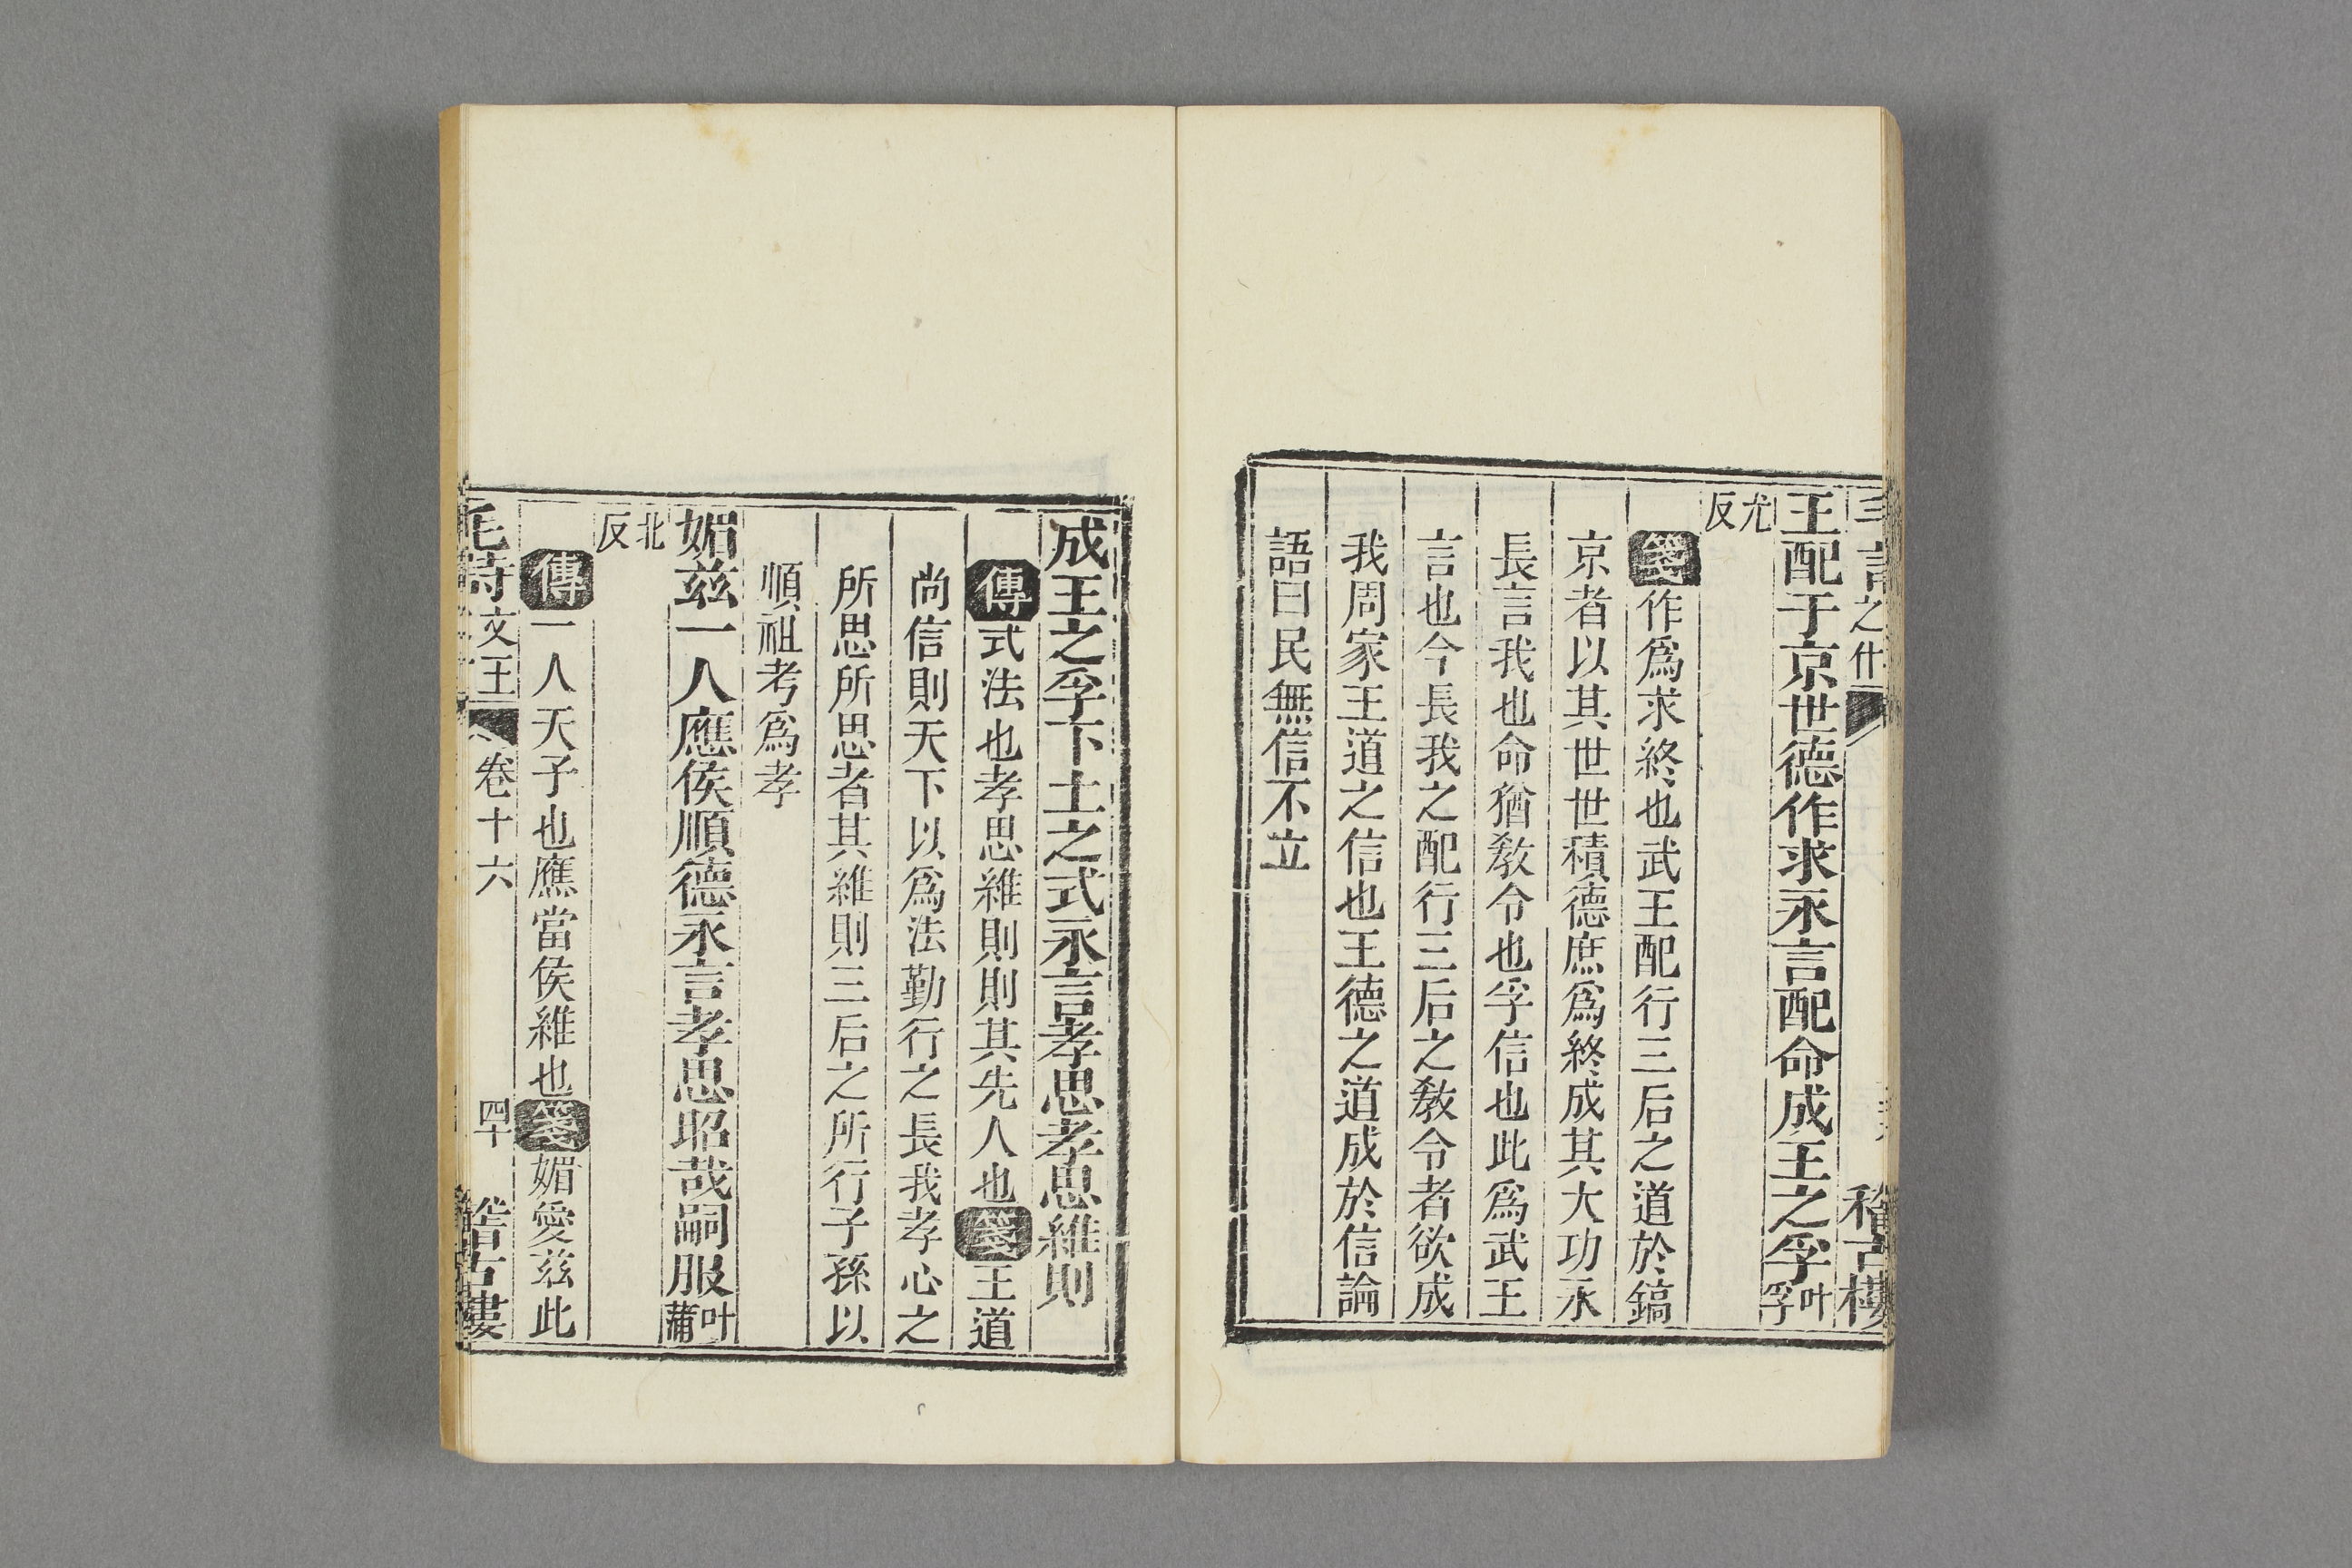 言之什
稽古樓
王配于京世德作求永言配命成王之孚叶孚
尤反
箋作爲求終也武王配行三后之道於鎬
京者以其世世積德庶爲終成其大功永
長言我也命猶教令也孚信也此爲武王
言也今長我之配行三后之教令者欲成
我周家王道之信也王德之道成於信論
語曰民無信不立
成王之孚下土之式永言孝思孝思維則
傳式法也孝思維則則其先人也箋王道
尚信則天下以爲法勤行之長我孝心之
所思所思者其維則三后之所行子孫以
順祖考爲孝
媚茲一人應侯順德永言孝思昭哉嗣服叶蒲
北反
傳一人天子也應當侯維也箋媚愛茲此
毛詩文王 卷十六 四十 稽古樓